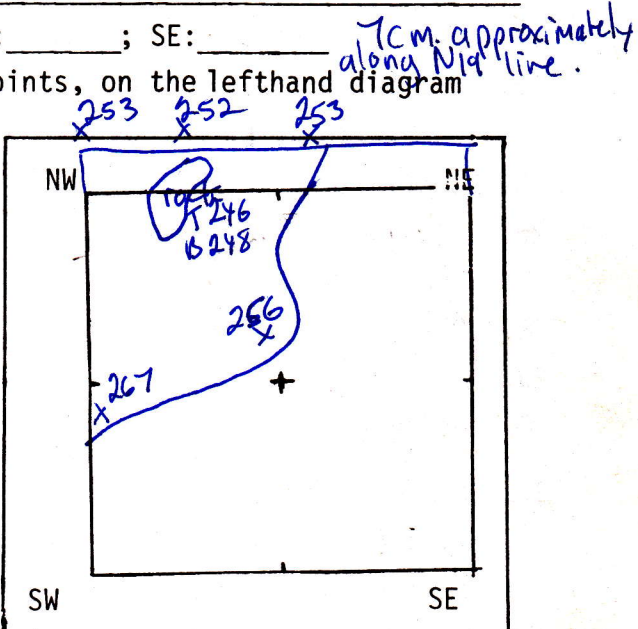 :________; SE:________
7cm. approximately
along N19 line.
oints, on the lefthand diagram
253 252 253
NW NE
rock
T 246
B 248
256
267
SW SE